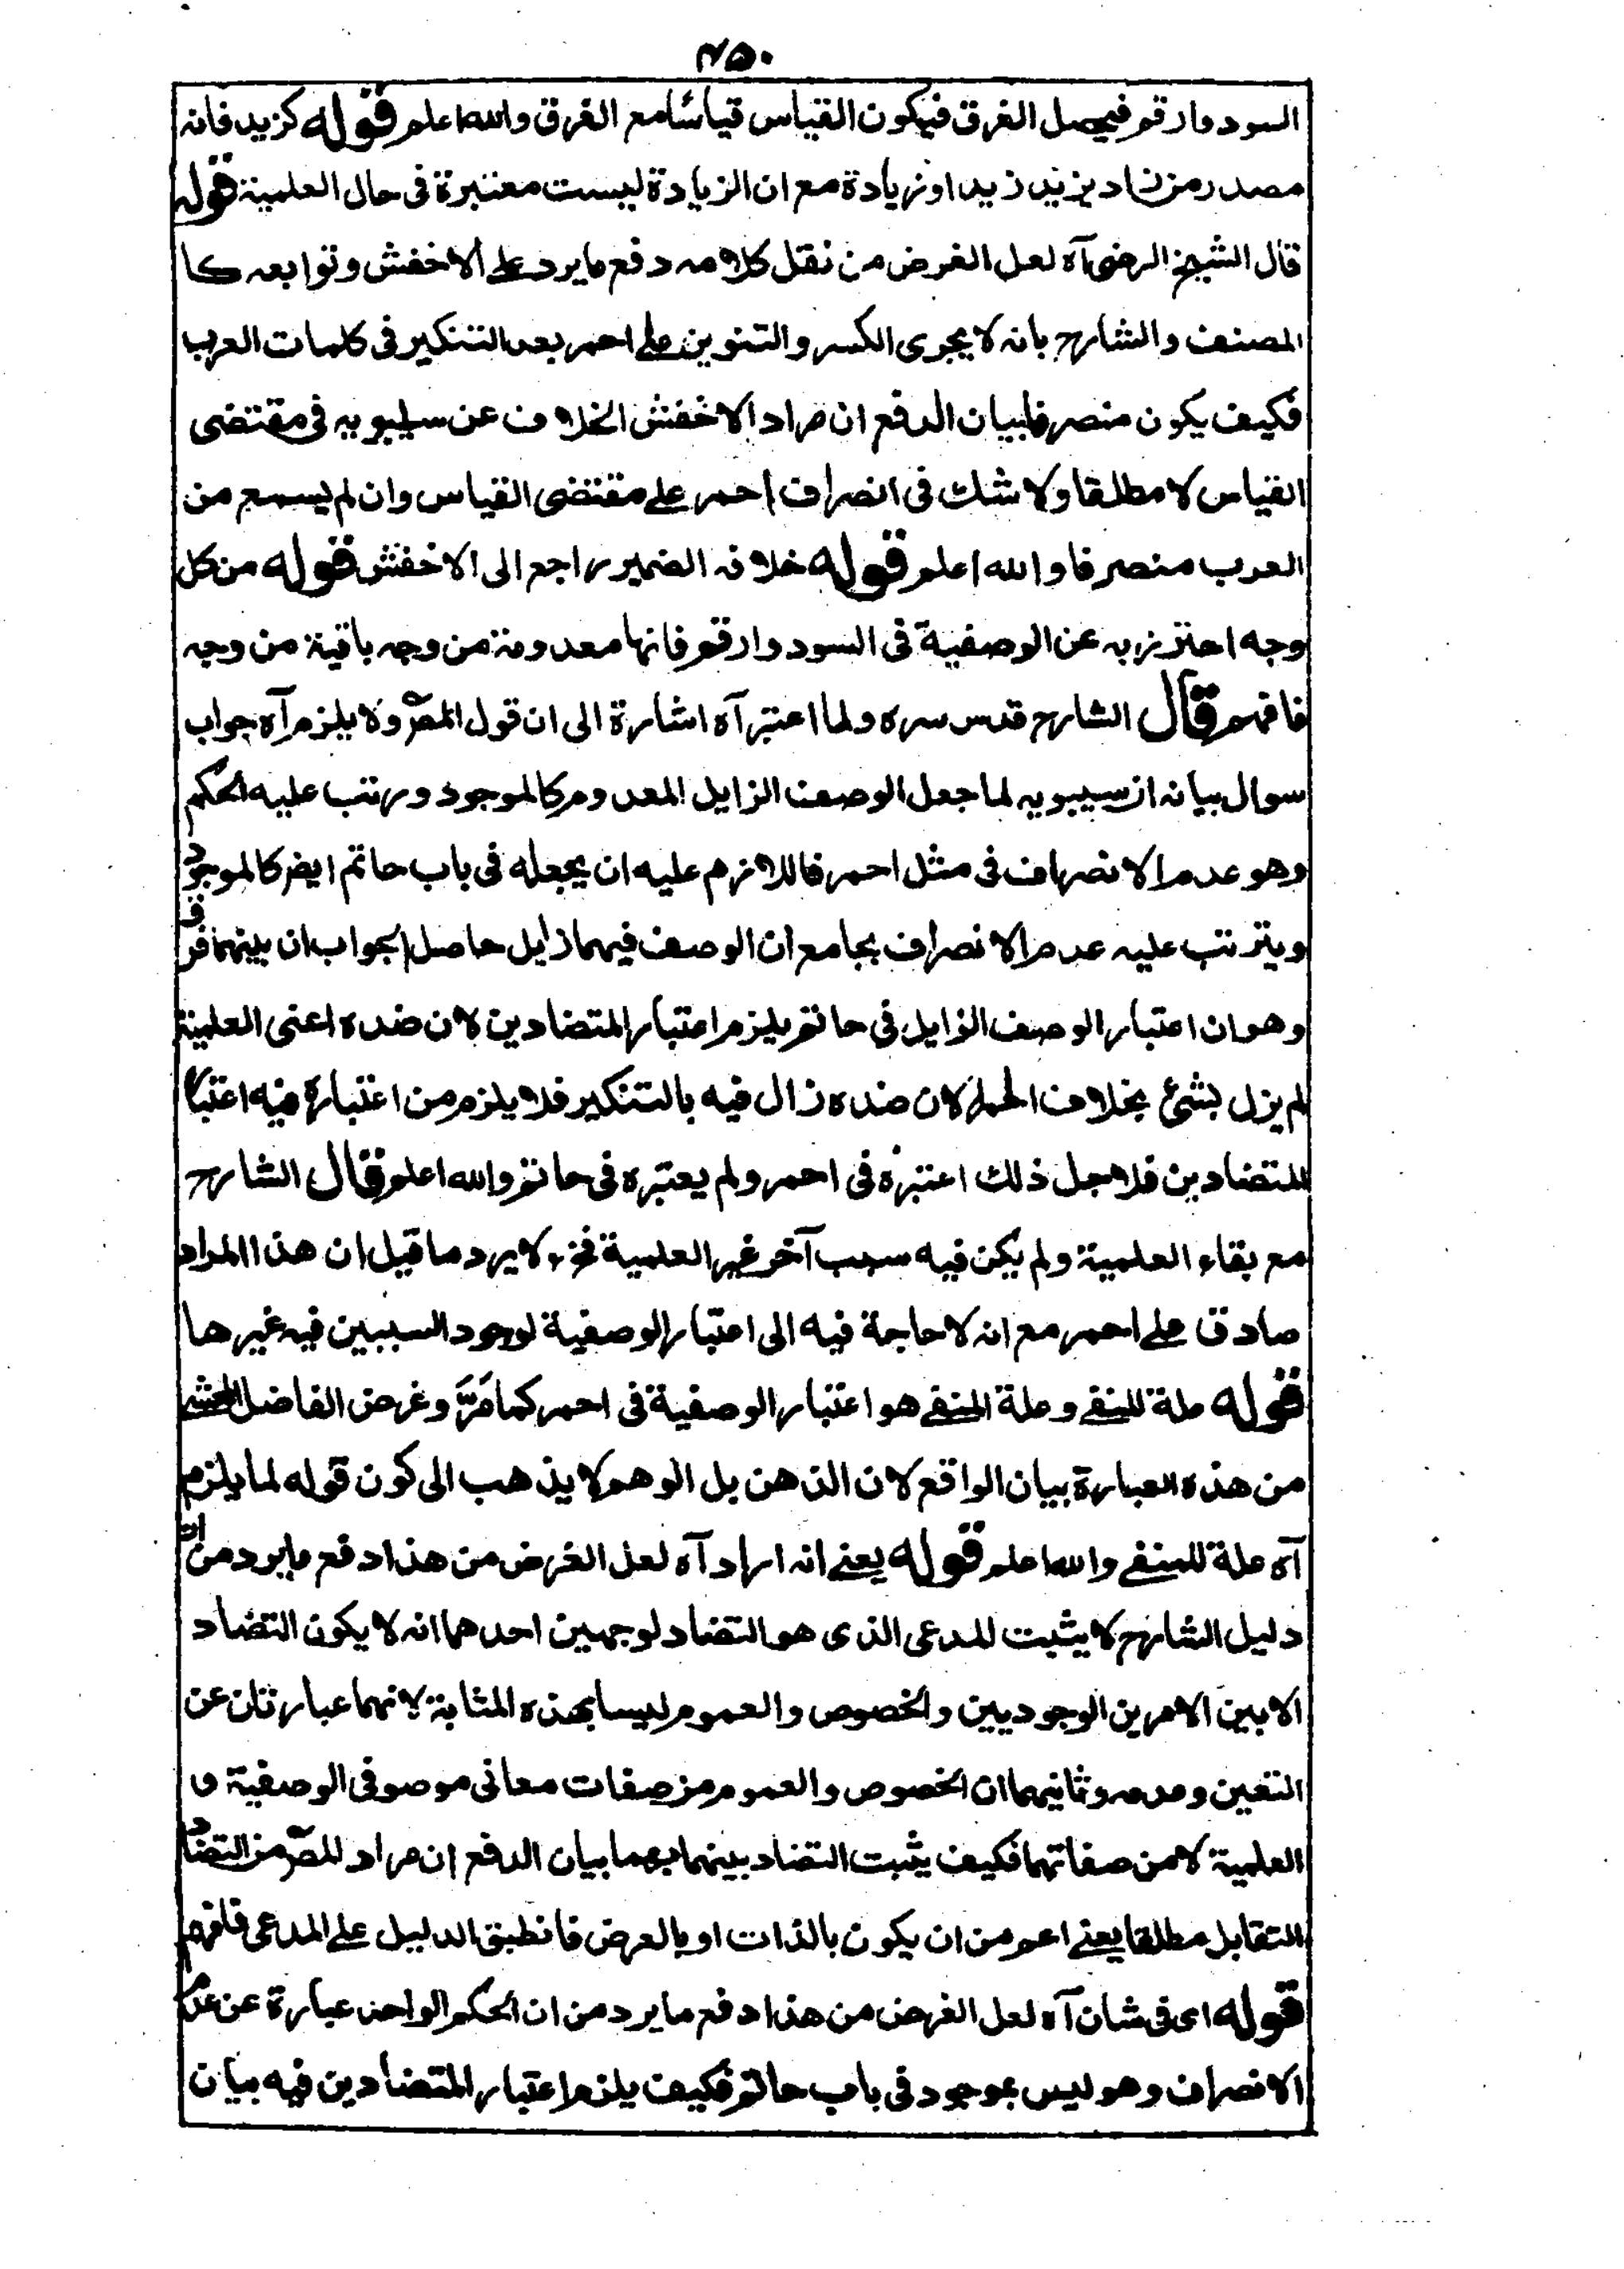 ۴۵۰
السود وارقم فيحصل الفرق فيكون القياس قياسًا مع الفرق والله اعلم قوله كزيد فانه
مصدر من زاد يزيد زيدا او زيادة مع ان الزيادة ليست معتبرة فى حال العلمية قوله
قال الشيخ الرضى آه لعل الغرض من نقل كلامه دفع ما يرد على الاخفش وتوابعه كا
المصنف والشارح بانه لا يجرى الكسر والتنوين على احمر بعد التنكير فى كلمات العرب
فكيف يكون منصرفا بيان الدفع ان مراد الاخفش الخلاف عن سيبويه فى مقتضى
القياس لا مطلقا ولا شك فى انصراف احمر على مقتضى القياس وان لم يسمع من
العرب منصرفا والله اعلم قوله خلافه الضمير راجع الى الاخفش قوله من كل
وجه احترز به عن الوصفية فى السود وارقم فانها معدومة من وجه باقية من وجه
فافهم قال الشارح قدس سره ولما اعتبر آه اشارة الى ان قول المصّ ولا يلزم آه جواب
سوال بيانه ان سيبويه لما جعل الوصف الزايل المعدوم كالموجود ورتب عليه الحكم
وهو عدم الانصراف فى مثل احمر فاللازم عليه ان يجعله فى باب حاتم ايضر كالموجود
ويترتب عليه عدم الانصراف بجامع ان الوصف فيهما زايل حاصل الجواب ان بينهما فرق
وهو ان اعتبار الوصف الزايل فى حاتم يلزم اعتبار المتضادين لان ضده اعنى العلمية
لم يزل بشئ بخلاف احمر لان ضده زال فيه بالتنكير فلا يلزم من اعتباره فيه اعتبار
للمتضادين فلاجل ذلك اعتبره فى احمر ولم يعتبره فى حاتم والله اعلم قال الشارح
مع بقاء العلمية ولم يكن فيه سبب آخر غير العلمية فح لا يرد ما قيل ان هذا المراد
صادق على احمر مع انه لا حاجة فيه الى اعتبار الوصفية لوجود السببين فيه غيرها
قوله علة للنفے وعلة المنفے هو اعتبار الوصفية فى احمر كما مَرَّ وغرض الفاضل المحشے
من هذه العبارة بيان الواقع لان الذهن بل الوهم لا يذهب الى كون قوله لما يلزم
آه علة للمنفے والله اعلم قوله يعنے انه اراد آه لعل الغرض من هذا دفع ما يرد من ان
دليل الشارح لا يثبت المدعى الذى هو التضاد لوجهين احدهما انه لا يكون التضاد
الا بين الامرين الوجوديين والخصوص والعموم ليسا بهذه المثابة لانهما عبارتان عن
التعين وعدمه وثانيهما ان الخصوص والعموم من صفات معانى موصوفى الوصفية و
العلمية لا من صفاتهما فكيف يثبت التضاد بينهما بهما بيان الدفع ان مراد المصّ من التضاد
التقابل مطلقا يعنے اعم من ان يكون بالذات او بالعرض فانطبق الدليل على المدعى فافهم
قوله اى فى شان آه لعل الغرض من هذا دفع ما يرد من ان الحكم الواحد عبارة عن عدم
الانصراف وهو ليس بموجود فى باب حاتم فكيف يلزم اعتبار المتضادين فيه بيان